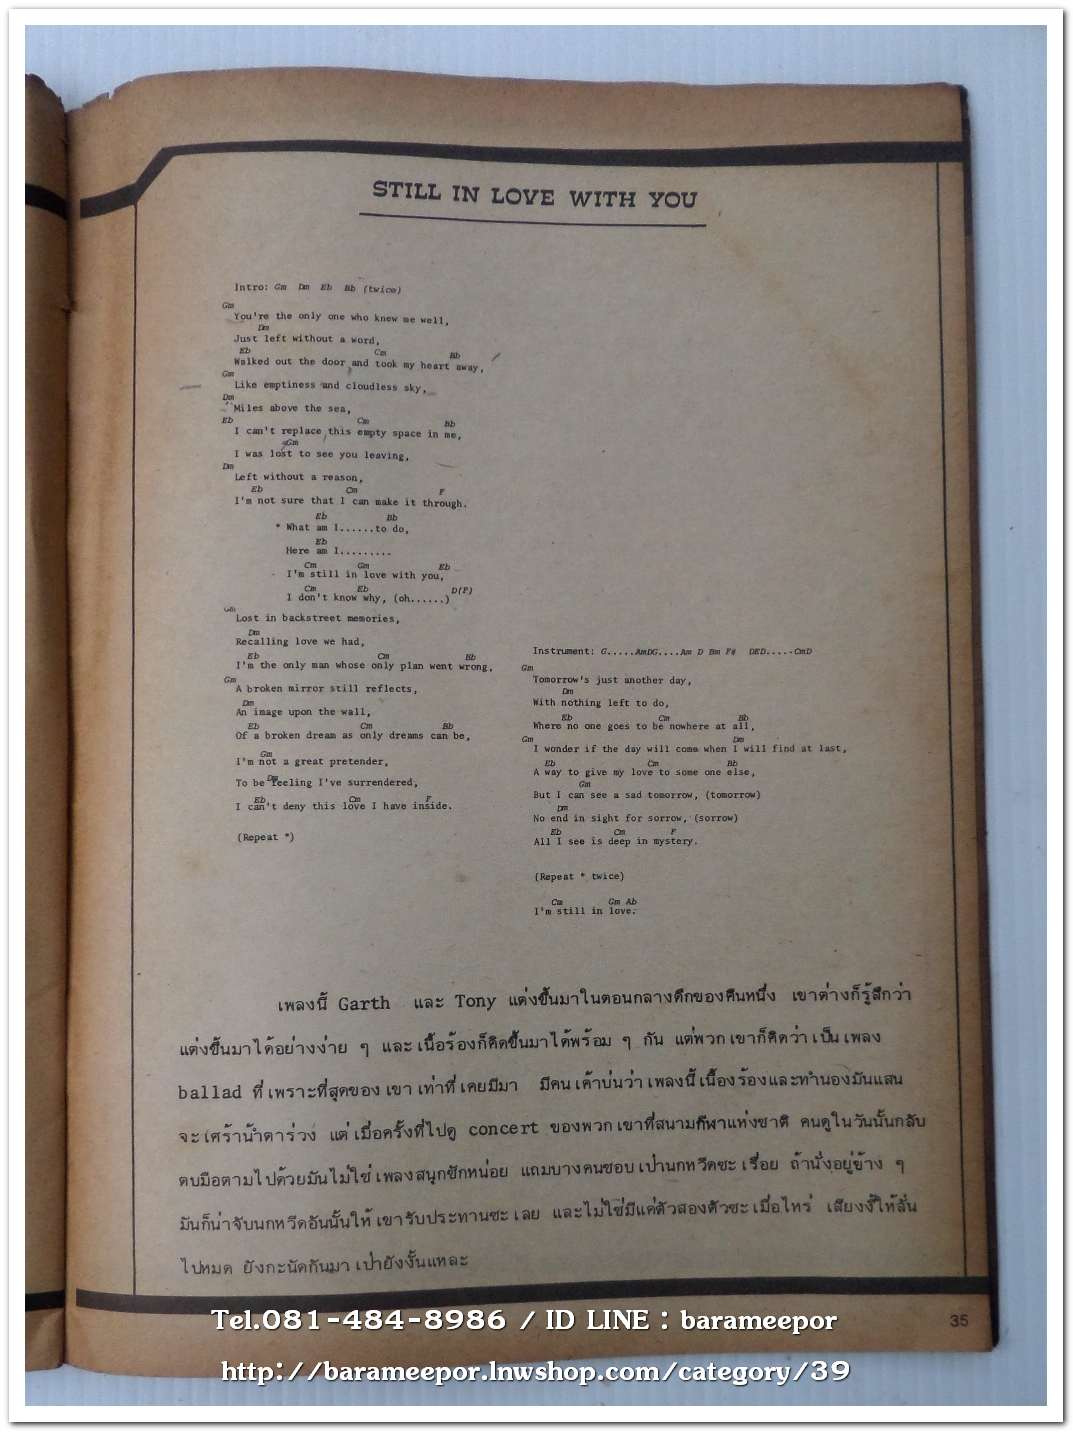 STILL IN LOVE WITH YOU
Intro: Gm Dm Eb Bb (twice)
Gm
You're the only one who knew me well,
Dm
Just left without a word,
Eb Cm Bb
Walked out the door and took my heart away,
Gm
Like emptiness and cloudless sky,
Dm
Miles above the sea,
Eb Cm Bb
I can't replace this empty space in me,
Gm
I was lost to see you leaving,
Dm
Left without a reason,
Eb Cm F
I'm not sure that I can make it through.
Eb Bb
* What am I......to do,
Eb
Here am I.........
Cm Gm Eb
I'm still in love with you,
Cm Eb D(F)
I don't know why, (oh......)
Gm
Lost in backstreet memories,
Dm
Recalling love we had,
Eb Cm Bb
I'm the only man whose only plan went wrong,
Gm
A broken mirror still reflects,
Dm
An image upon the wall,
Eb Cm Bb
Of a broken dream as only dreams can be,
Gm
I'm not a great pretender,
Dm
To be feeling I've surrendered,
Eb Cm F
I can't deny this love I have inside.
(Repeat *)
Instrument: G.....AmDG....Am D Bm F# DED.....CmD
Gm
Tomorrow's just another day,
Dm
With nothing left to do,
Eb Cm Bb
Where no one goes to be nowhere at all,
Gm Dm
I wonder if the day will come when I will find at last,
Eb Cm Bb
A way to give my love to some one else,
Gm
But I can see a sad tomorrow, (tomorrow)
Dm
No end in sight for sorrow, (sorrow)
Eb Cm F
All I see is deep in mystery.
(Repeat * twice)
Cm Gm Ab
I'm still in love.
เพลงนี้ Garth และ Tony แต่งขึ้นมาในตอนกลางดึกของคืนหนึ่ง เขาต่างก็รู้สึกว่า
แต่งขึ้นมาได้อย่างง่าย ๆ และเนื้อร้องก็คิดขึ้นมาได้พร้อม ๆ กัน แต่พวกเขาก็คิดว่าเป็นเพลง
ballad ที่เพราะที่สุดของเขาเท่าที่เคยมีมา มีคนเค้าบ่นว่าเพลงนี้เนื้องร้องและทำนองมันแสน
จะเศร้าน้ำตาร่วง แต่เมื่อครั้งที่ไปดู concert ของพวกเขาที่สนามกีฬาแห่งชาติ คนดูในวันนั้นกลับ
ตบมือตามไปด้วยมันไม่ใช่เพลงสนุกซักหน่อย แถมบางคนชอบเป่านกหวีดซะเรื่อย ถ้านั่งอยู่ข้าง ๆ
มันก็น่าจับนกหวีดอันนั้นให้เขารับประทานซะเลย และไม่ใช่มีแค่ตัวสองตัวซะเมื่อไหร่ เสียงงี้ให้ลั่น
ไปหมด ยังกะนัดกันมาเป่ายังงั้นแหละ
35
Tel.081-484-8986 / ID LINE : barameepor
http://barameepor.lnwshop.com/category/39